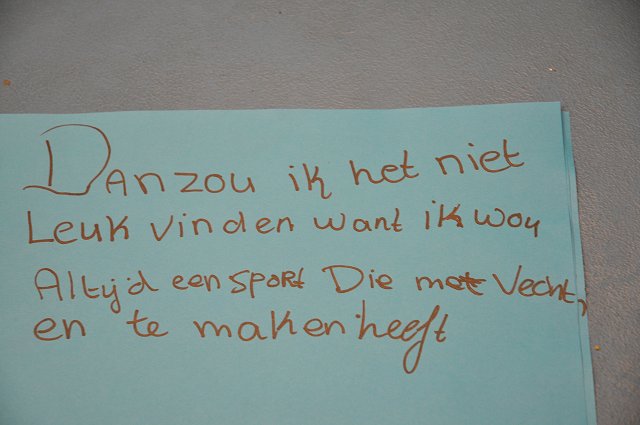 Dan zou ik het niet
Leuk vinden want ik wou
Altijd een sport Die met Vecht,
en te maken heeft